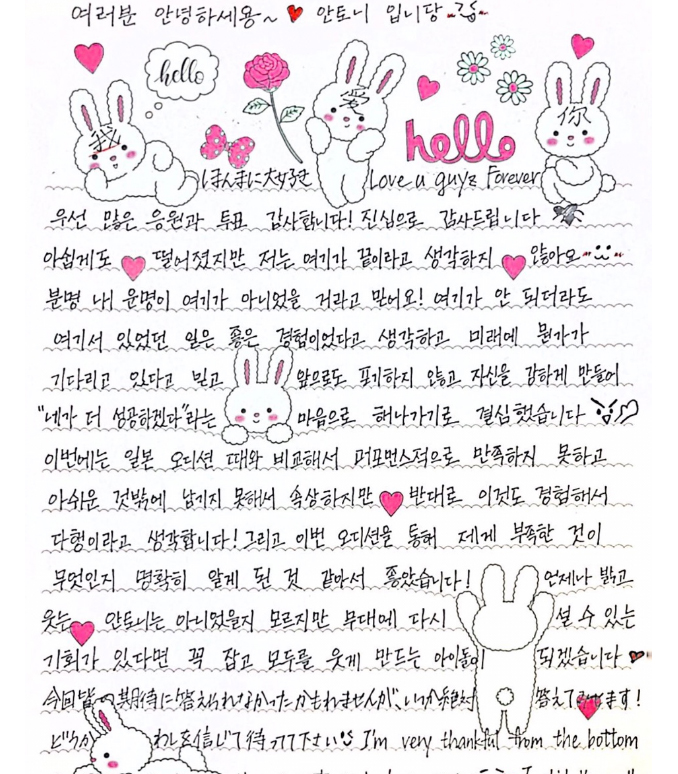 여러분 안녕하세용~ ♥ 안토니 입니당
hello
我
愛
你
hello
ほんまに大好き Love u guyz Forever
우선 많은 응원과 투표 감사합니다! 진심으로 감사드립니다
아쉽게도 ♥ 떨어졌지만 저는 여기가 끝이라고 생각하지 ♥ 않아요
분명 내 운명이 여기가 아니었을 거라고 믿어요! 여기가 안 되더라도
여기서 있었던 일은 좋은 경험이었다고 생각하고 미래에 뭔가가
기다리고 있다고 믿고 앞으로도 포기하지 않고 자신을 강하게 만들어
"네가 더 성공하겠다"라는 마음으로 해나가기로 결심했습니다
이번에는 일본 오디션 때와 비교해서 퍼포먼스적으로 만족하지 못하고
아쉬운 것밖에 남기지 못해서 속상하지만 ♥ 반대로 이것도 경험해서
다행이라고 생각합니다! 그리고 이번 오디션을 통해 제게 부족한 것이
무엇인지 명확히 알게 된 것 같아서 좋았습니다! 언제나 밝고
웃는 ♥ 안토니는 아니었을지 모르지만 무대에 다시 설 수 있는
기회가 있다면 꼭 잡고 모두를 웃게 만드는 아이돌이 되겠습니다
今回皆の期待に答えられなかったかもれませんが、いつか絶対 答えてみせます!
どうか われを信じて待ってて下さい I'm very thankful from the bottom